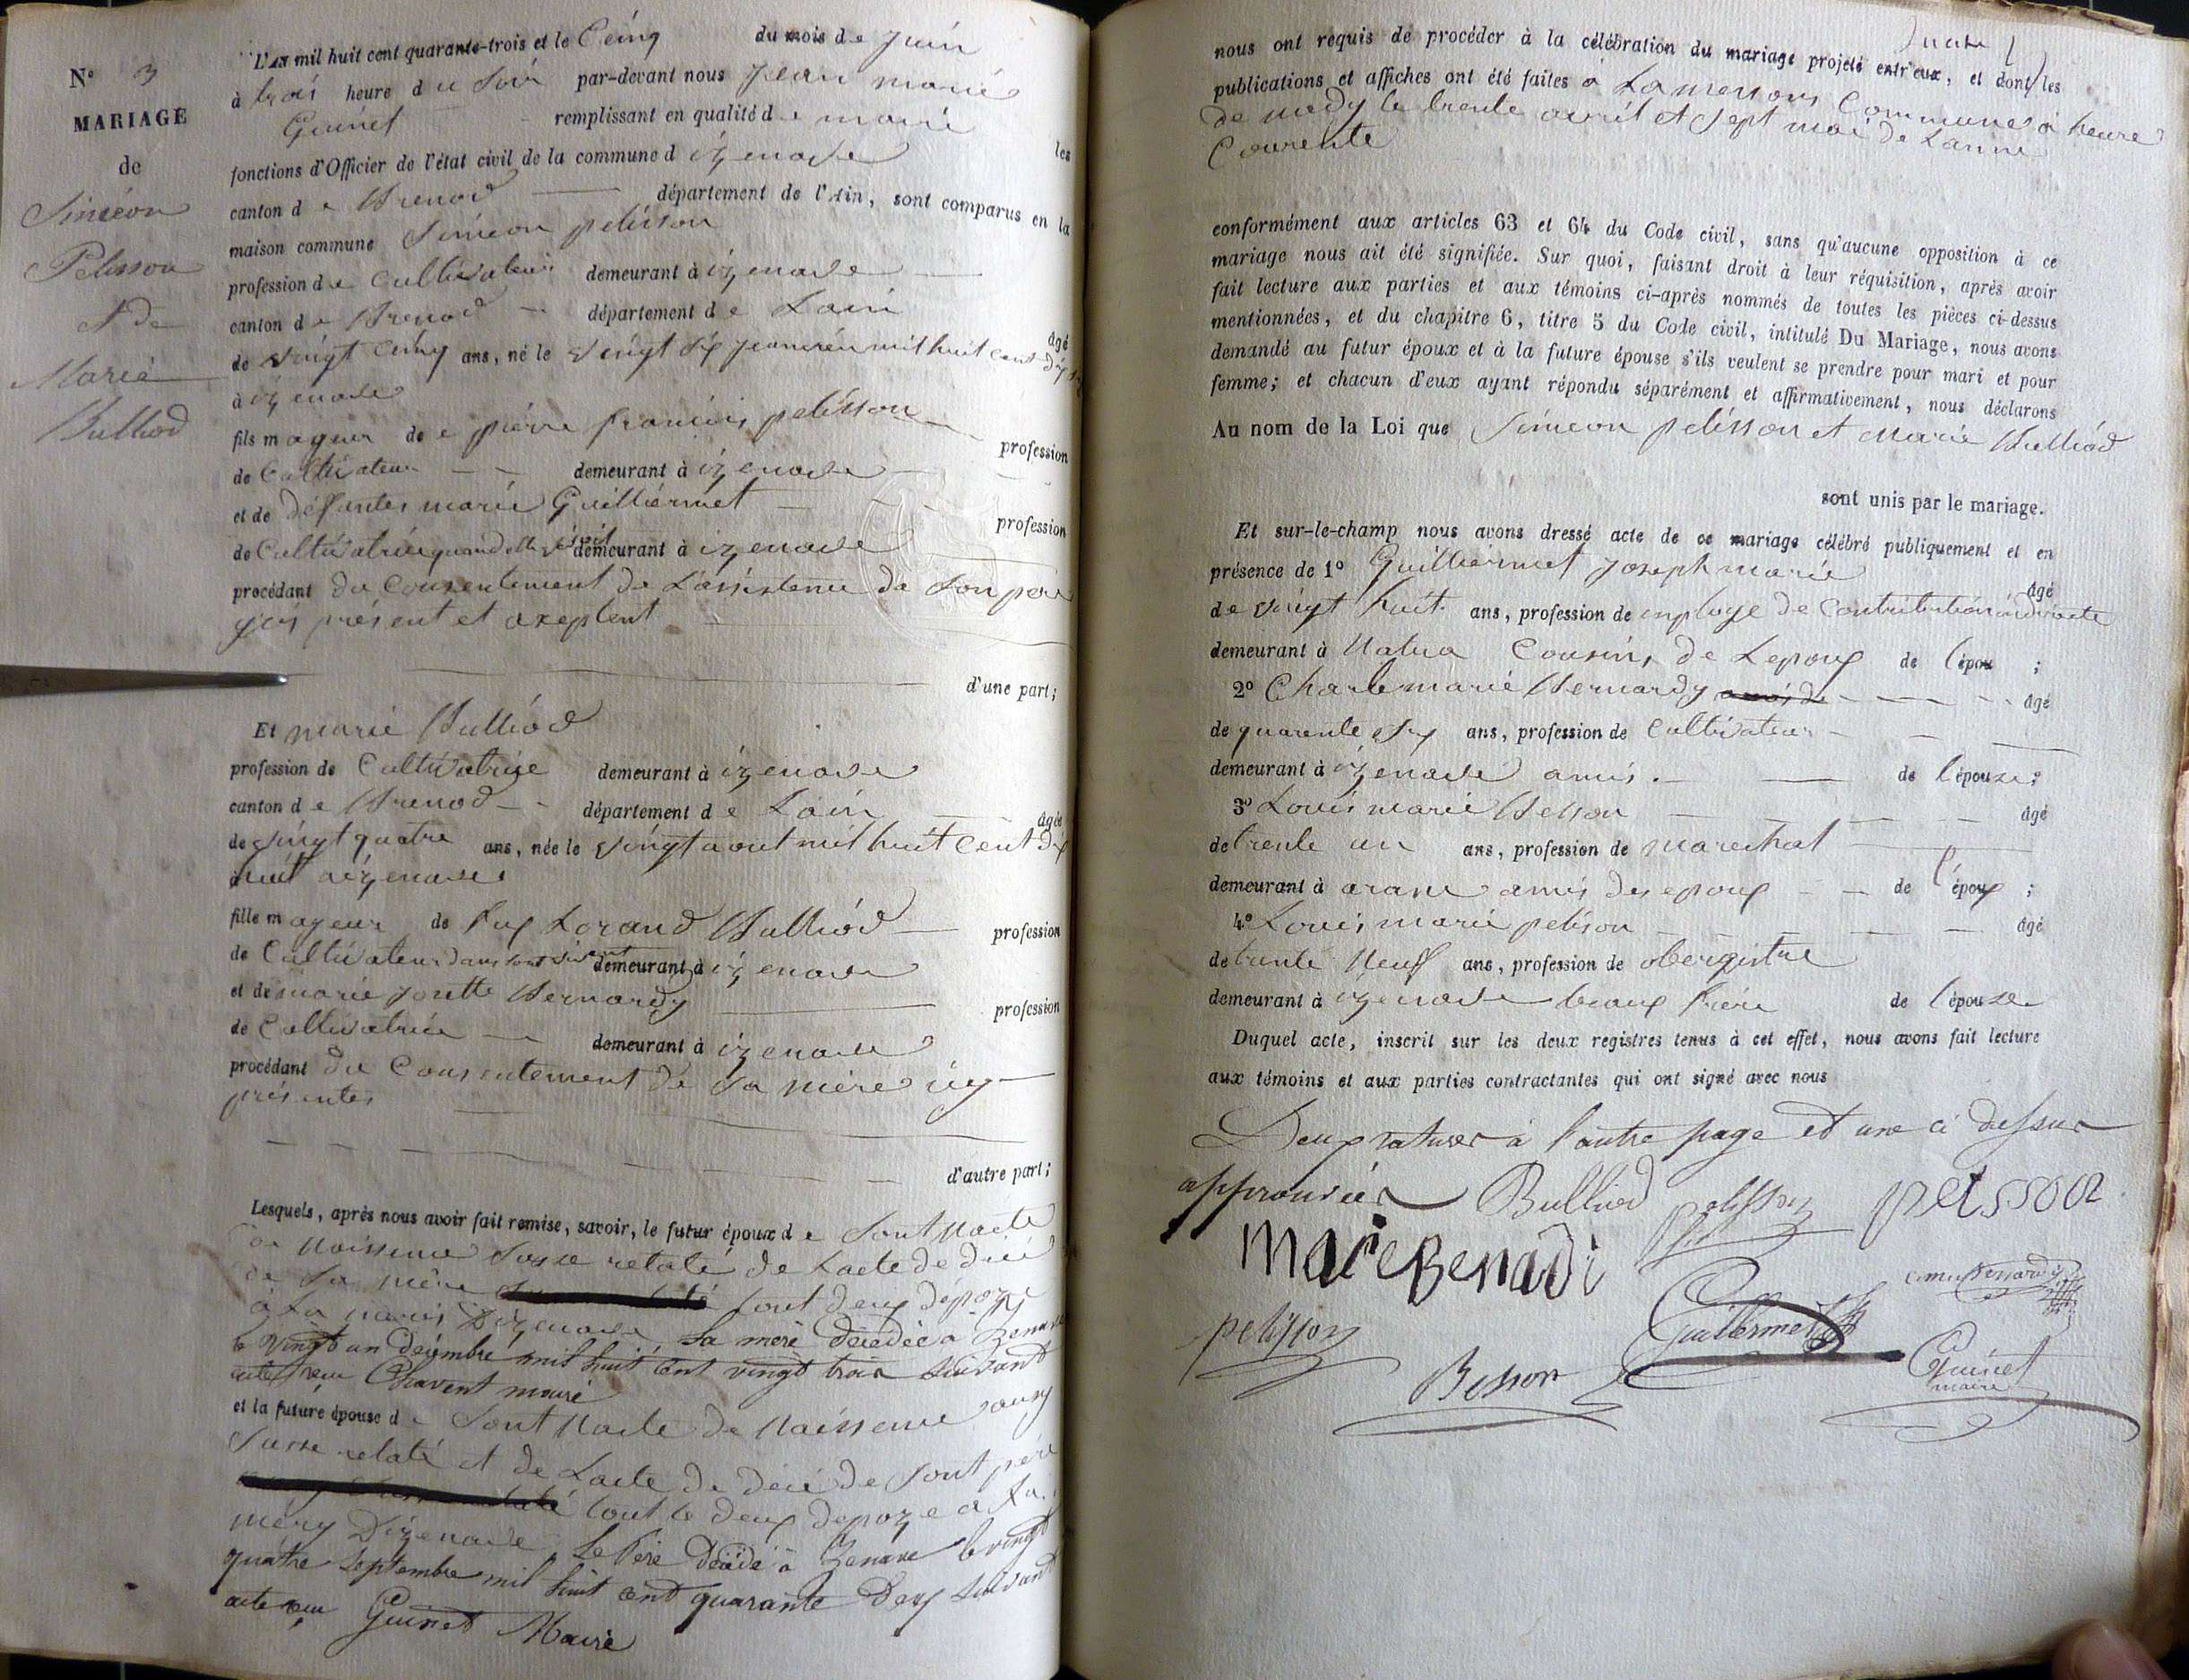 N° 3
MARIAGE
de
Siméon
Pelisson
et de
Marie
Bulliod
L'AN mil huit cent quarante-trois et le Ceinq du mois de juin
à trois heure du soir par-devant nous jean marie
Guinet remplissant en qualité de maire les
fonctions d'Officier de l'état civil de la commune d izenave
canton de Brenod département de l'Ain, sont comparus en la
maison commune Simeon pelisson
profession de cultivateur demeurant à izenave
canton de Brenod département de Lain âgé
de vingt cinq ans, né le vingt six jeanvien mil huit cent
à izenave
fils mageur de pierre francois pelisson profession
de Cultivateur demeurant à izenave
et de défuntes marie Guilliermet profession
de Cultivatrice quand elle vivoit demeurant à izenave
procédant du Consentement de L'assistence de Son pere
présent et axeptent
d'une part;
Et marie Bulliod
profession de Cultivatrice demeurant à izenave
canton de Brenod département de Lain âgée
de vingt quatre ans, née le vingt aout mil huit Cent dix
huit a izenave
fille mageur de Lorand Bulliod profession
de Cultivateur dans son vivant demeurant à izenave
et de marie josette Bernardy profession
de Cultivatrice demeurant à izenave
procédant du Consentement de Sa mère icy
présentes
d'autre part;
Lesquels, après nous avoir fait remise, savoir, le futur époux de Sont Nacte
de Naissence Susse relaté de Lacte de dicé
de Sa mère sont deux dépozé
à La maris Dizenave, La mère décédée a Zenave
le vingt un décembre mil huit cent vingt trois suivant
acte reçu Chavent maire
et la future épouse de Sont Nacte de Naissence ausy
Susse relaté et de Lacte de décé de Sont père
tout le deux depoze a La
méry Dizenave Le Père décédé à Zenave le vingt
quatre septembre mil huit cent quarante Deux suivant
acte reçu Guinet Maire
nous ont requis de procéder à la célébration du mariage projeté entr'eux, et dont les
publications et affiches ont été faites à La mersons Commune a heure
de medy le trente avril et sept mai de Lanne
Courente
conformément aux articles 63 et 64 du Code civil, sans qu'aucune opposition à ce
mariage nous ait été signifiée. Sur quoi, faisant droit à leur réquisition, après avoir
fait lecture aux parties et aux témoins ci-après nommés de toutes les pièces ci-dessus
mentionnées, et du chapitre 6, titre 5 du Code civil, intitulé Du Mariage, nous avons
demandé au futur époux et à la future épouse s'ils veulent se prendre pour mari et pour
femme; et chacun d'eux ayant répondu séparément et affirmativement, nous déclarons
Au nom de la Loi que Simeon pelisson et Marie Bulliod
sont unis par le mariage.
Et sur-le-champ nous avons dressé acte de ce mariage célébré publiquement et en
présence de 1° Guilliermet joseph marie âgé
de vingt huit ans, profession de employe de Contribution indirecte
demeurant à Natua Cousin de Lepoux de l'épou ;
2° Charle marie Bernardy âgé
de quarente six ans, profession de Cultivateur
demeurant à izenave amis de l'épouze;
3° Louis marie Besson âgé
de trente un ans, profession de marechal
demeurant à arane amis des epoux de l'époux ;
4° Louis marie pelison âgé
de trente Neuf ans, profession de obergistre
demeurant à izenave beaux frère de l'épouze
Duquel acte, inscrit sur les deux registres tenus à cet effet, nous avons fait lecture
aux témoins et aux parties contractantes qui ont signé avec nous
Deux ratures à l'autre page et une ci dessus
approuvées Bulliod pelisson pelissoa
marie Benadi
pelisson Guillermet
Besson Guinet
maire